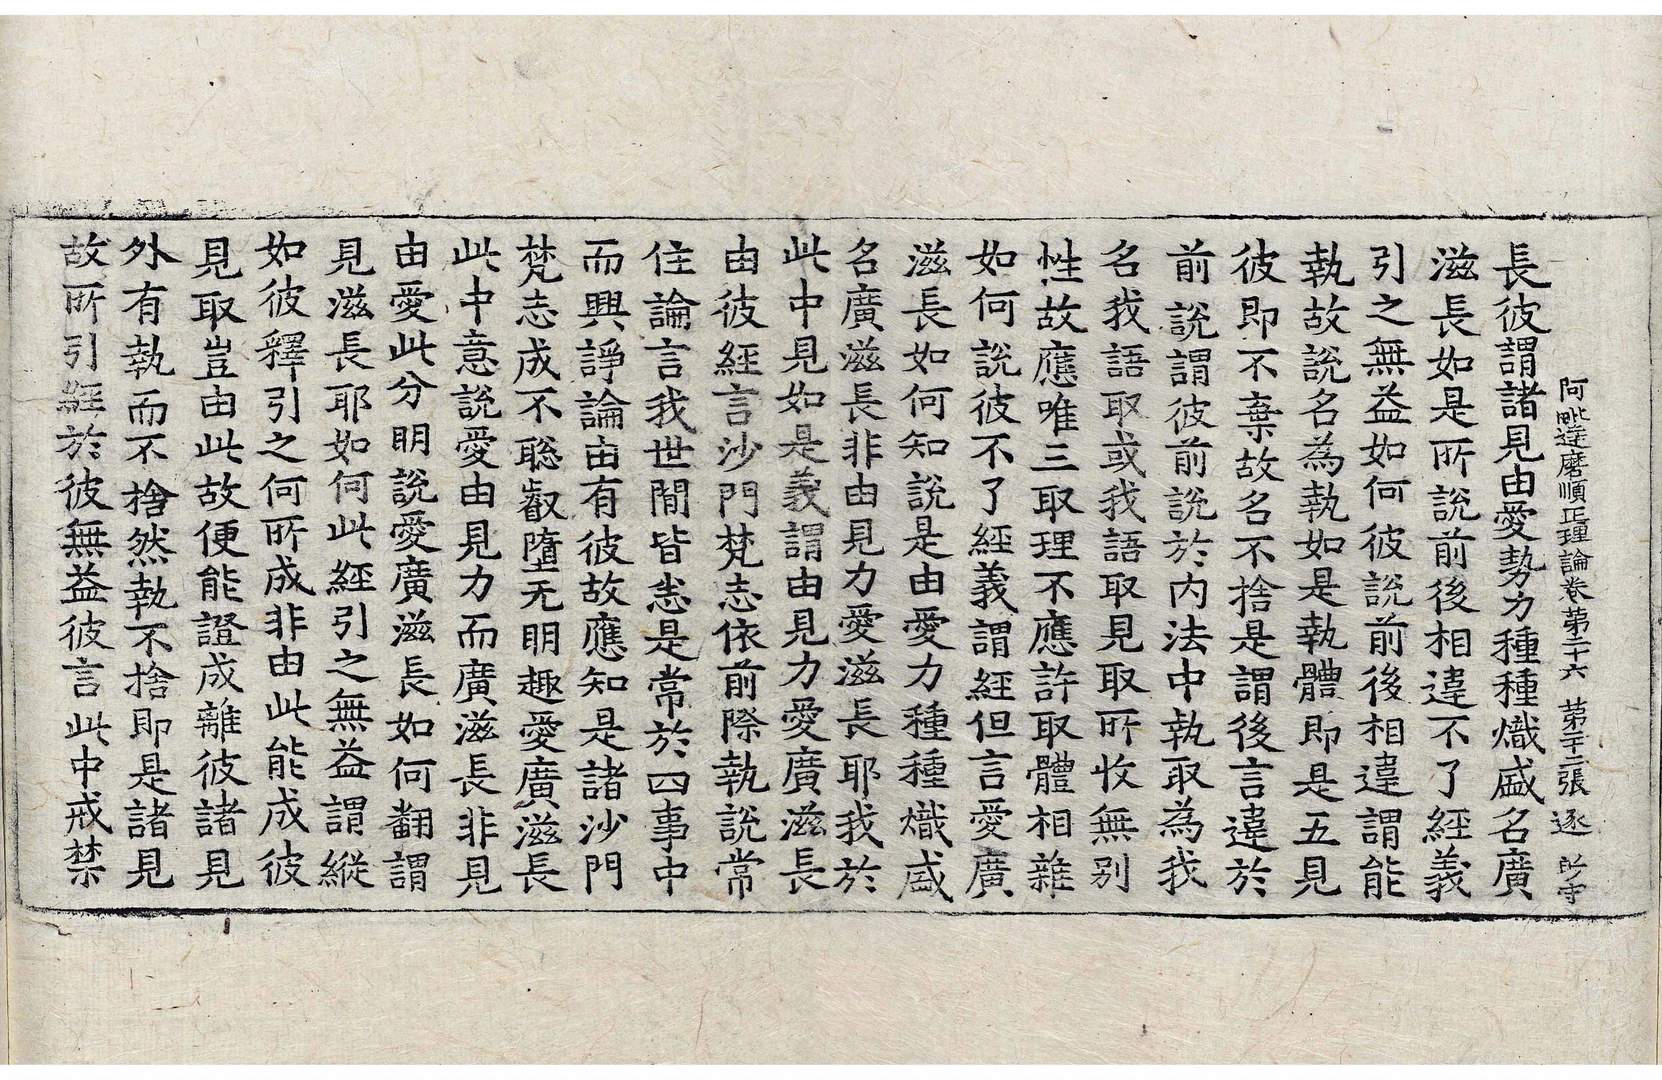 阿毗達磨順正理論卷第二十六 第二十二張 逐
長彼謂諸見由愛勢力種種熾盛名廣
滋長如是所說前後相違不了經義
引之無益如何彼說前後相違謂能
執故說名為執如是執體即是五見
彼即不棄故名不捨是謂後言違於
前說謂彼前說於内法中執取為我
名我語取或我語取見取所收無別
性故應唯三取理不應許取體相雜
如何說彼不了經義謂經但言愛廣
滋長如何知說是由愛力種種熾盛
名廣滋長非由見力愛滋長耶我於
此中見如是義謂由見力愛廣滋長
由彼經言沙門梵志依前際執說常
住論言我世間皆悉是常於四事中
而興諍論由有彼故應知是諸沙門
梵志成不聡叡墮无明趣愛廣滋長
此中意說愛由見力而廣滋長非見
由愛此分明說愛廣滋長如何翻謂
見滋長耶如何此經引之無益謂縱
如彼釋引之何所成非由此能成彼
見取豈由此故便能證成離彼諸見
外有執而不捨然執不捨即是諸見
故所引經於彼無益彼言此中戒禁